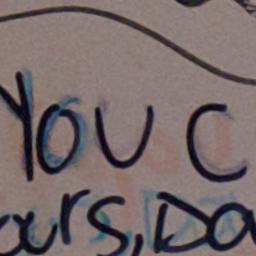 YOU C
ours, Da